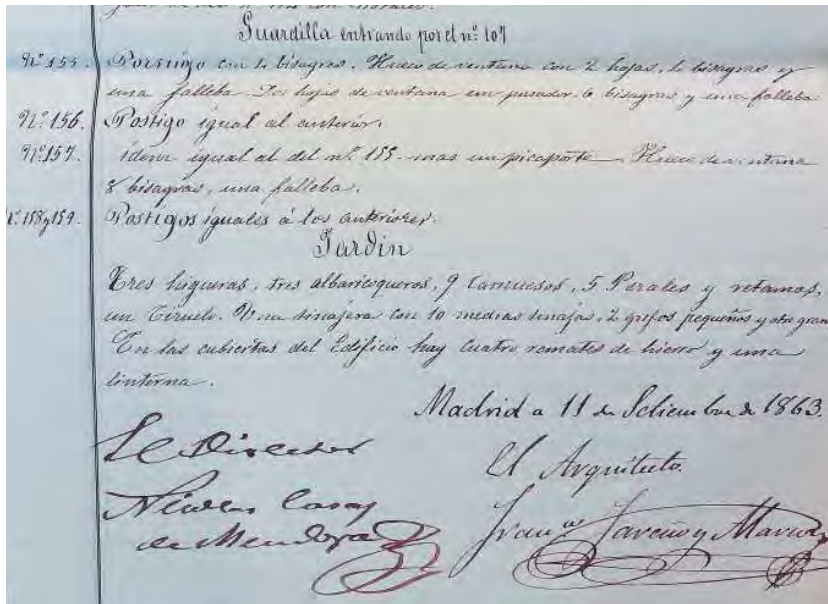 Guardilla entrando por el nº 107
Nº 155. Postigo con 4 bisagras. Hueco de ventana con 2 hojas, 4 bisagras y
una falleba. Dos hojas de ventana con pasador 6 bisagras y una falleba.
Nº 156. Postigo igual al anterior.
Nº 157. idem igual al del nº 155 mas un picaporte. Hueco de ventana
8 bisagras, una falleba.
158 y 159. Postigos iguales á los anteriores.
Jardin
Tres higueras, tres albaricoqueros, 9 Camuesos, 5 Perales y retamas,
un Ciruelo. Una tinajera con 10 medias tinajas, 2 grifos pequeños y otro gran
En las cubiertas del Edificio hay cuatro remates de hierro y una
linterna.
Madrid a 11 de Setiembre de 1863.
El Director
El Arquitecto
Nicolas Casas
de Mendoza
Franco Jareño y